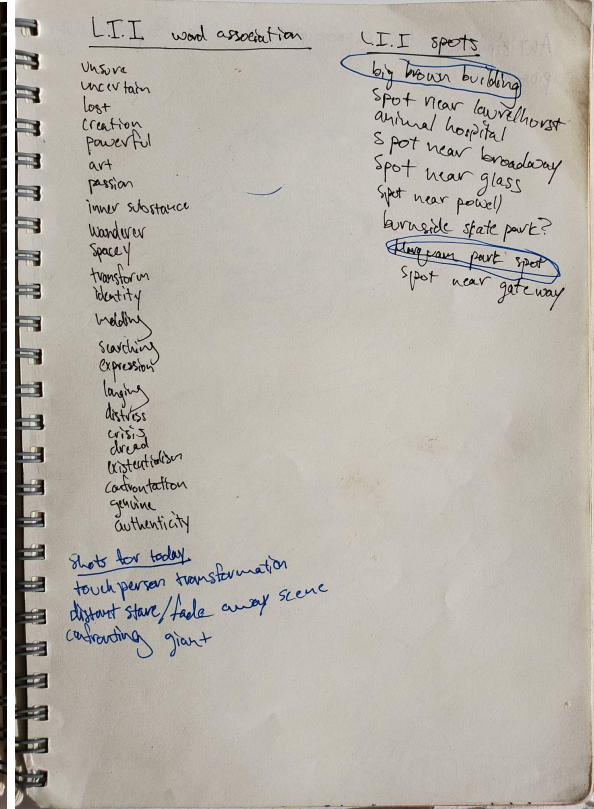 L.I.I word association
unsure
uncertain
lost
creation
powerful
art
passion
inner substance
wanderer
spacey
transform
identity
molding
searching
expression
longing
distress
crisis
dread
existentialism
confrontation
genuine
authenticity
shots for today
touch person transformation
distant stare/fade away scene
confronting giant
L.I.I spots
big brown building
spot near lawrelhurst
animal hospital
spot near broadway
spot near glass
spot near powell
burnside skate park?
Marquam park spot
spot near gateway